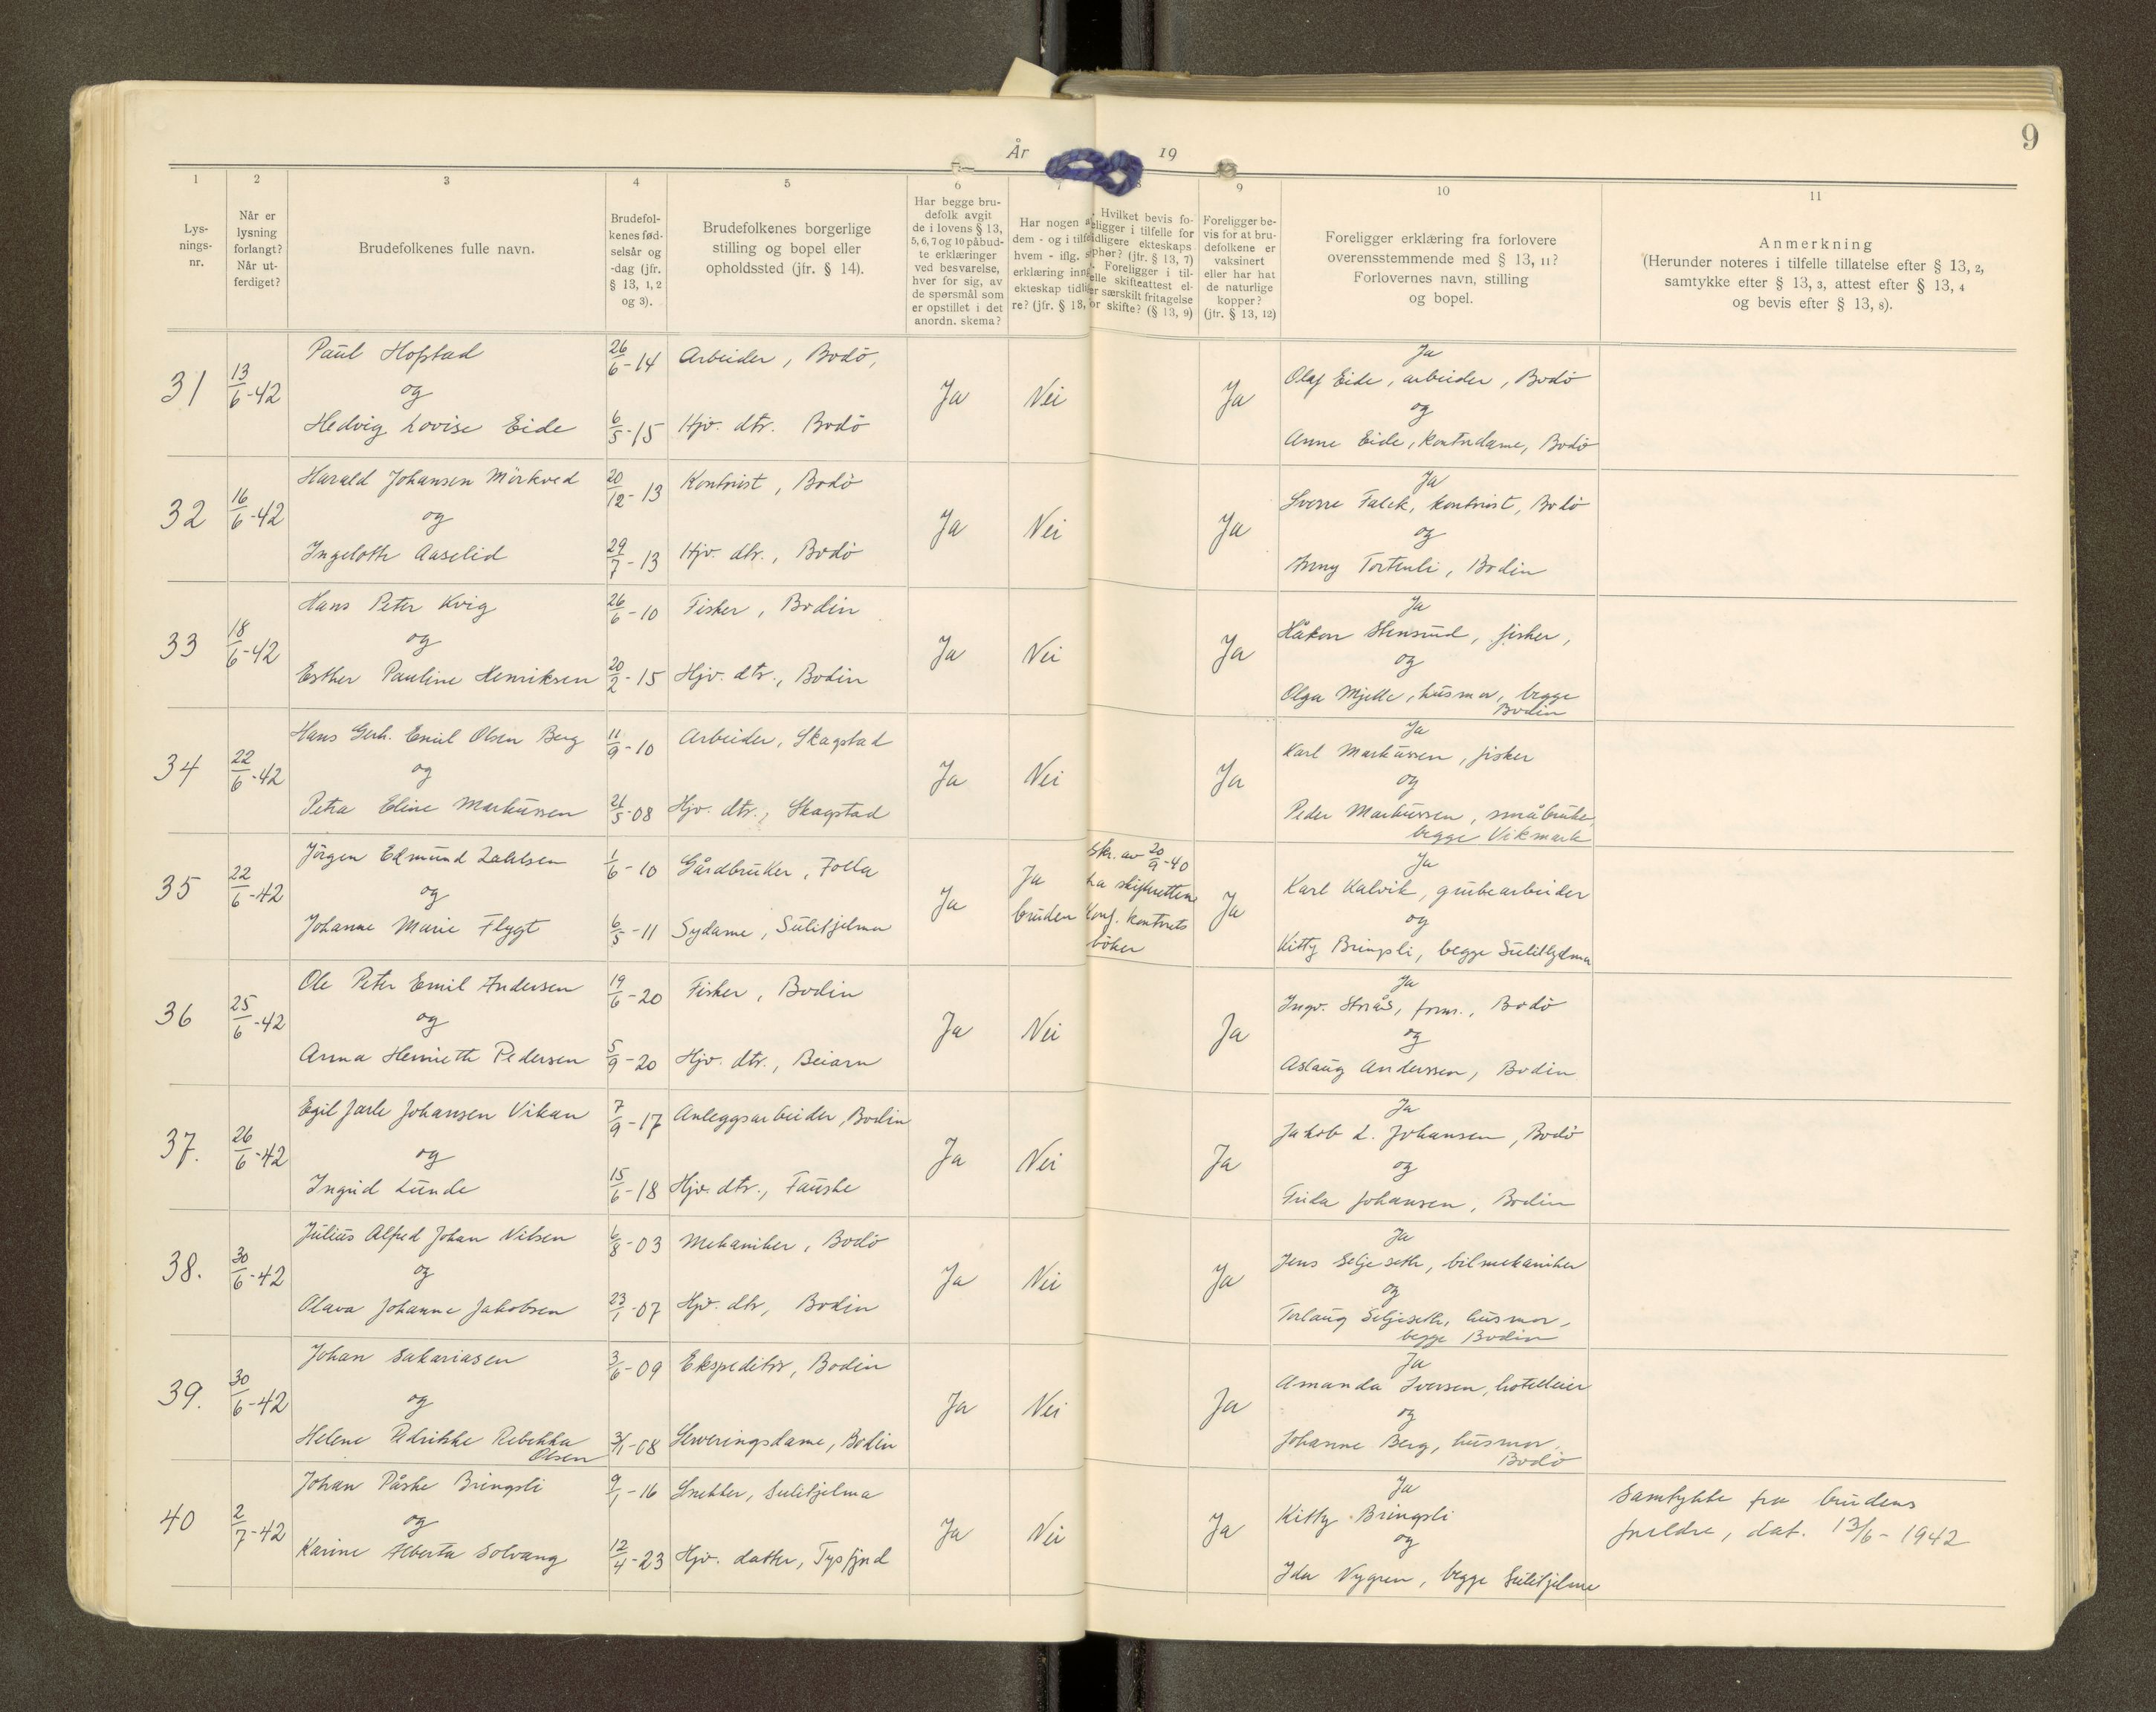 9
År 19
1 2 3 4 5 6 7 8 9 10 11
Lys-
nings-
nr.
Når er
lysning
forlangt?
Når ut-
ferdiget?
Brudefolkenes fulle navn.
Brudefol-
kenes fød-
selsår og
-dag (jfr.
§ 13, 1, 2
og 3).
Brudefolkenes borgerlige
stilling og bopel eller
opholdssted (jfr. § 14).
Har begge bru-
defolk avgit
de i lovens § 13,
5, 6, 7 og 10 påbud-
te erklæringer
ved besvarelse,
hver for sig, av
de spørsmål som
er opstillet i det
anordn. skema?
Har nogen a
dem - og i tilfe
hvem - iflg. s
erklæring inng
ekteskap tidli
re? (jfr. § 13,
Hvilket bevis fo-
eligger i tilfelle for
idligere ekteskaps
phør? (jfr. § 13, 7)
Foreligger i til-
elle skifteattest el-
er særskilt fritagelse
or skifte? (§ 13, 9)
Foreligger be-
vis for at bru-
defolkene er
vaksinert
eller har hat
de naturlige
kopper?
(jfr. § 13, 12)
Foreligger erklæring fra forlovere
overensstemmende med § 13, 11?
Forlovernes navn, stilling
og bopel.
Anmerkning
(Herunder noteres i tilfelle tillatelse efter § 13, 2,
samtykke efter § 13, 3, attest efter § 13, 4
og bevis efter § 13, 8).
31 13/6-42 Paul Hopstad 26/6-14 Arbeider, Bodö, Ja Nei Ja Ja
og Olaf Eide, arbeider, Bodö
og
Hedvig Lovise Eide 6/5-15 Hjv. dtr. Bodö Anne Eide, kontrdame, Bodö
32 16/6-42 Harald Johansen Mörkved 20/12-13 Kontorist, Bodö Ja Nei Ja Ja
og Sverre Falck, kontorist, Bodö
og
Ingeloth Aaselid 29/7-13 Hjv. dtr., Bodö Bodin
33 18/6-42 Hans Peter Kvig 26/6-10 Fisker, Bodin Ja Nei Ja Ja
og Håkon Stensund, fisker,
og
Esther Pauline Henriksen 20/2-15 Hjv. dtr., Bodin Olga Mjelle, husmor, begge
Bodin
34 22/6-42 Hans Gerh. Emil Olsen Berg 11/9-10 Arbeider, Skagstad Ja Nei Ja Ja
og Karl Markussen, fisker
og
Petra Eline Markussen 21/5-08 Hjv. dtr., Skagstad Peder Markussen, småbruker,
begge Vikmark
35 22/6-42 Jörgen Edmund Zahlsen 1/6-10 Gårdbruker, Folla Ja Ja bruden skr. av 20/9-40
fra skifteretten
konf. kontorets
böker Ja Ja
og Karl Kalvik, grubearbeider
og
Johanne Marie Flygt 6/5-11 Sydame, Sulitjelma Kitty Bringsli, begge Sulitjelma
36 25/6-42 Ole Peter Emil Andersen 19/6-20 Fisker, Bodin Ja Nei Ja Ja
og Ingv. Strås, form., Bodö
og
Anna Henrieth Pedersen 5/9-20 Hjv. dtr., Beiarn Aslaug Anderssen, Bodin
37. 26/6-42 Egil Jarle Johansen Vikan 7/9-17 Anleggsarbeider, Bodin Ja Nei Ja Ja
og Jakob L. Johansen, Bodö
og
Ingrid Lunde 15/6-18 Hjv. dtr., Fauske Frida Johansen, Bodin
38. 30/6-42 Julius Alfred Johan Nilsen 6/8-03 Mekaniker, Bodö Ja Nei Ja Ja
og Jens Seljeseth, bilmekaniker
og
Olava Johanne Jakobsen 23/1-07 Hjv. dtr, Bodin Torlaug Seljeseth, husmor,
begge Bodin
39. 30/6-42 Johan Sakariasen 3/6-09 Ekspeditör, Bodin Ja Nei Ja Ja
og Amanda Iversen, hotelleier
og
Helene Pedrikke Rebekka 3/1-08 Serveringsdame, Bodin Johanne Berg, husmor,
Olsen Bodö
40 2/7-42 Johan Påske Bringsli 9/1-16 Snekker, Sulitjelma Ja Nei Ja Ja Samtykke fra brudens
og Kitty Bringsli foreldre, dat. 13/6-1942
og
Karine Alberta Solvang 12/4-23 Hjv. datter, Tysfjord Ida Nygren, begge Sulitjelma